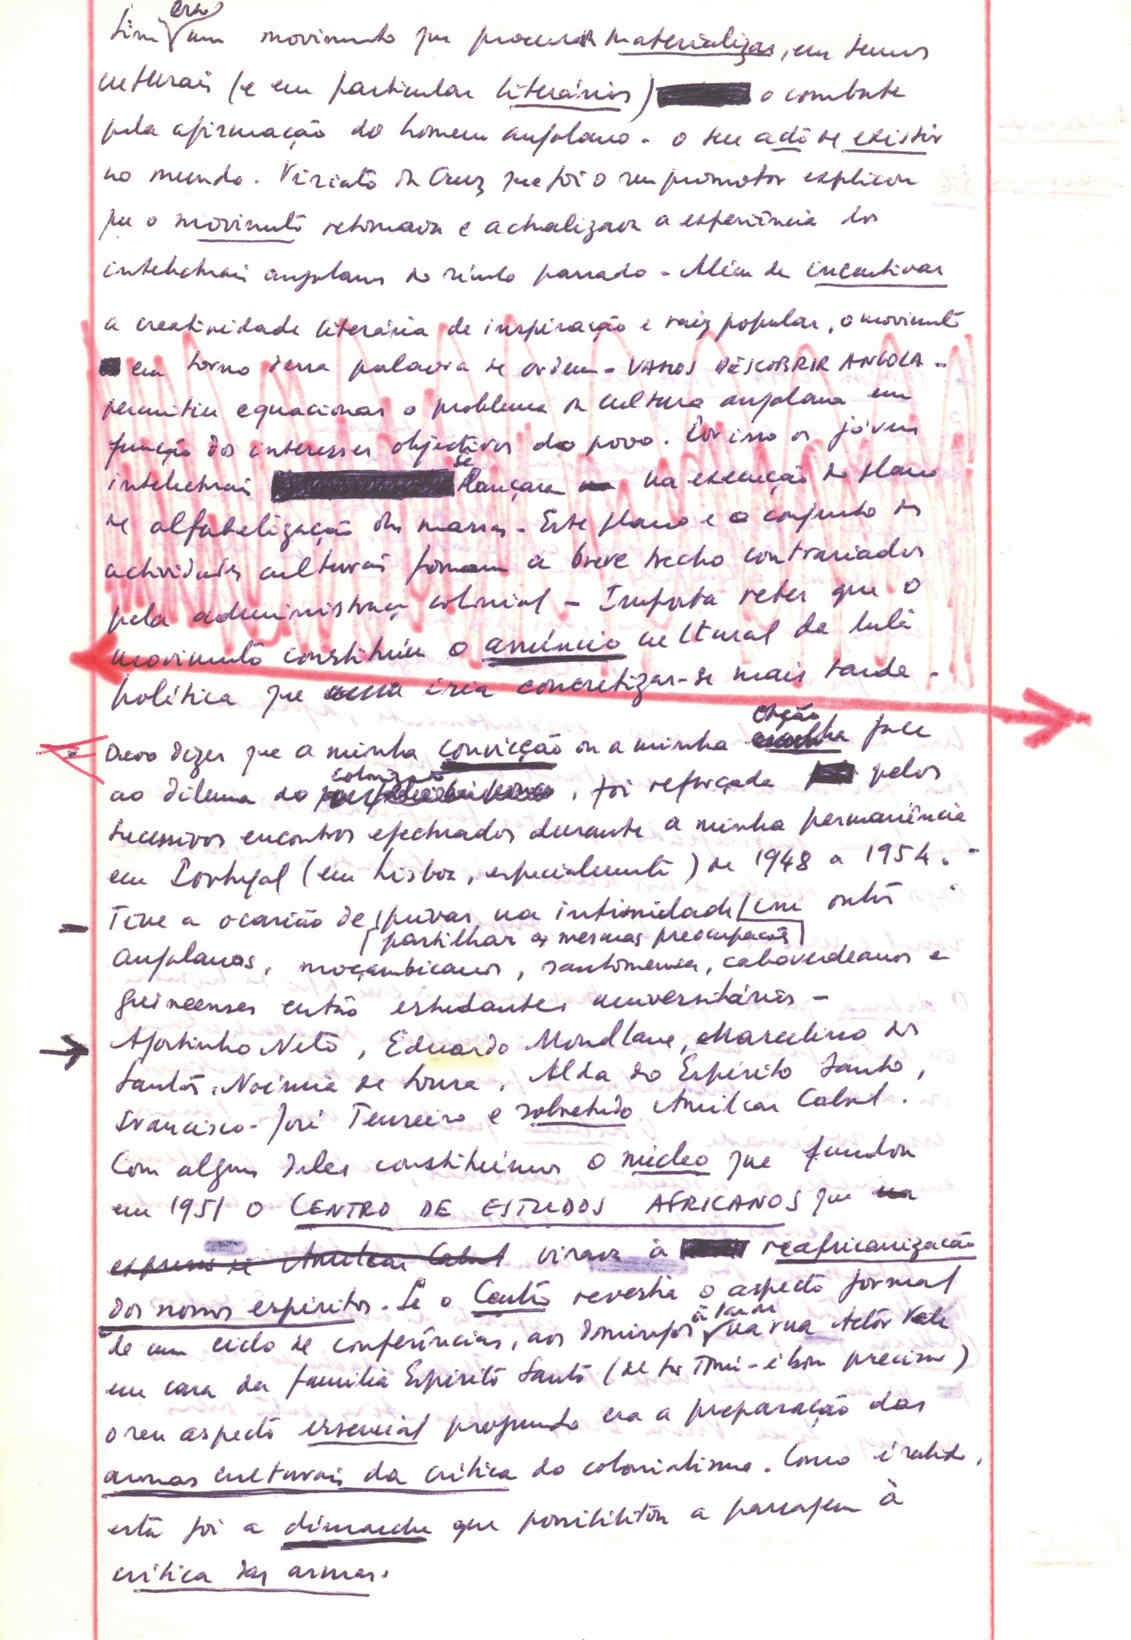 Sim, era um movimento que procurava materializar, em termos
culturais (e em particular literários) o combate
pela afirmação do homem angolano - o seu acto de existir
no mundo. Viriato da Cruz que foi o seu promotor explicou
que o movimento retomava e actualizava a experiência dos
intelectuais angolanos do século passado - Além de incentivar
a creatividade literária de inspiração e raiz popular, o movimento
em torno dessa palavra de ordem - VAMOS DESCOBRIR ANGOLA -
permitiu equacionar o problema da cultura angolana em
função dos interesses objectivos do povo. Por isso os jóvens
intelectuais se lançaram na execução do plano
de alfabetização das massas - Este plano e o conjunto das
actividades culturais foram a breve trecho contrariados
pela administração colonial - Importa reter que o
movimento constituiu o anúncio cultural da luta
política que iria concretizar-se mais tarde -
Devo dizer que a minha convicção ou a minha opção face
ao dilema do colonizado, foi reforçada pelos
sucessivos encontros efectuados durante a minha permanência
em Portugal (em Lisboa, especialmente) de 1948 a 1954. -
Tive a ocasião de privar na intimidade com outros
partilhar as mesmas preocupações
angolanos, moçambicanos, santomenses, caboverdeanos e
guineenses então estudantes universitários -
Agostinho Neto, Eduardo Mondlane, Marcelino dos
Santos, Noémia de Sousa, Alda do Espírito Santo,
Francisco-José Tenreiro e sobretudo Amílcar Cabral.
Com alguns deles constituimos o núcleo que fundou
em 1951 o CENTRO DE ESTUDOS AFRICANOS que
exprimiu-se Amílcar Cabral visava à reafricanização
dos nossos espíritos. Se o Centro revestia o aspecto formal
de um ciclo de conferências, aos domingos à tarde na rua Actor Vale
em casa da família Espírito Santo (de São Tomé - é bom precisar)
o seu aspecto essencial profundo era a preparação das
armas culturais da crítica do colonialismo. Como é sabido,
esta foi a démarche que possibilitou a passagem à
crítica das armas.